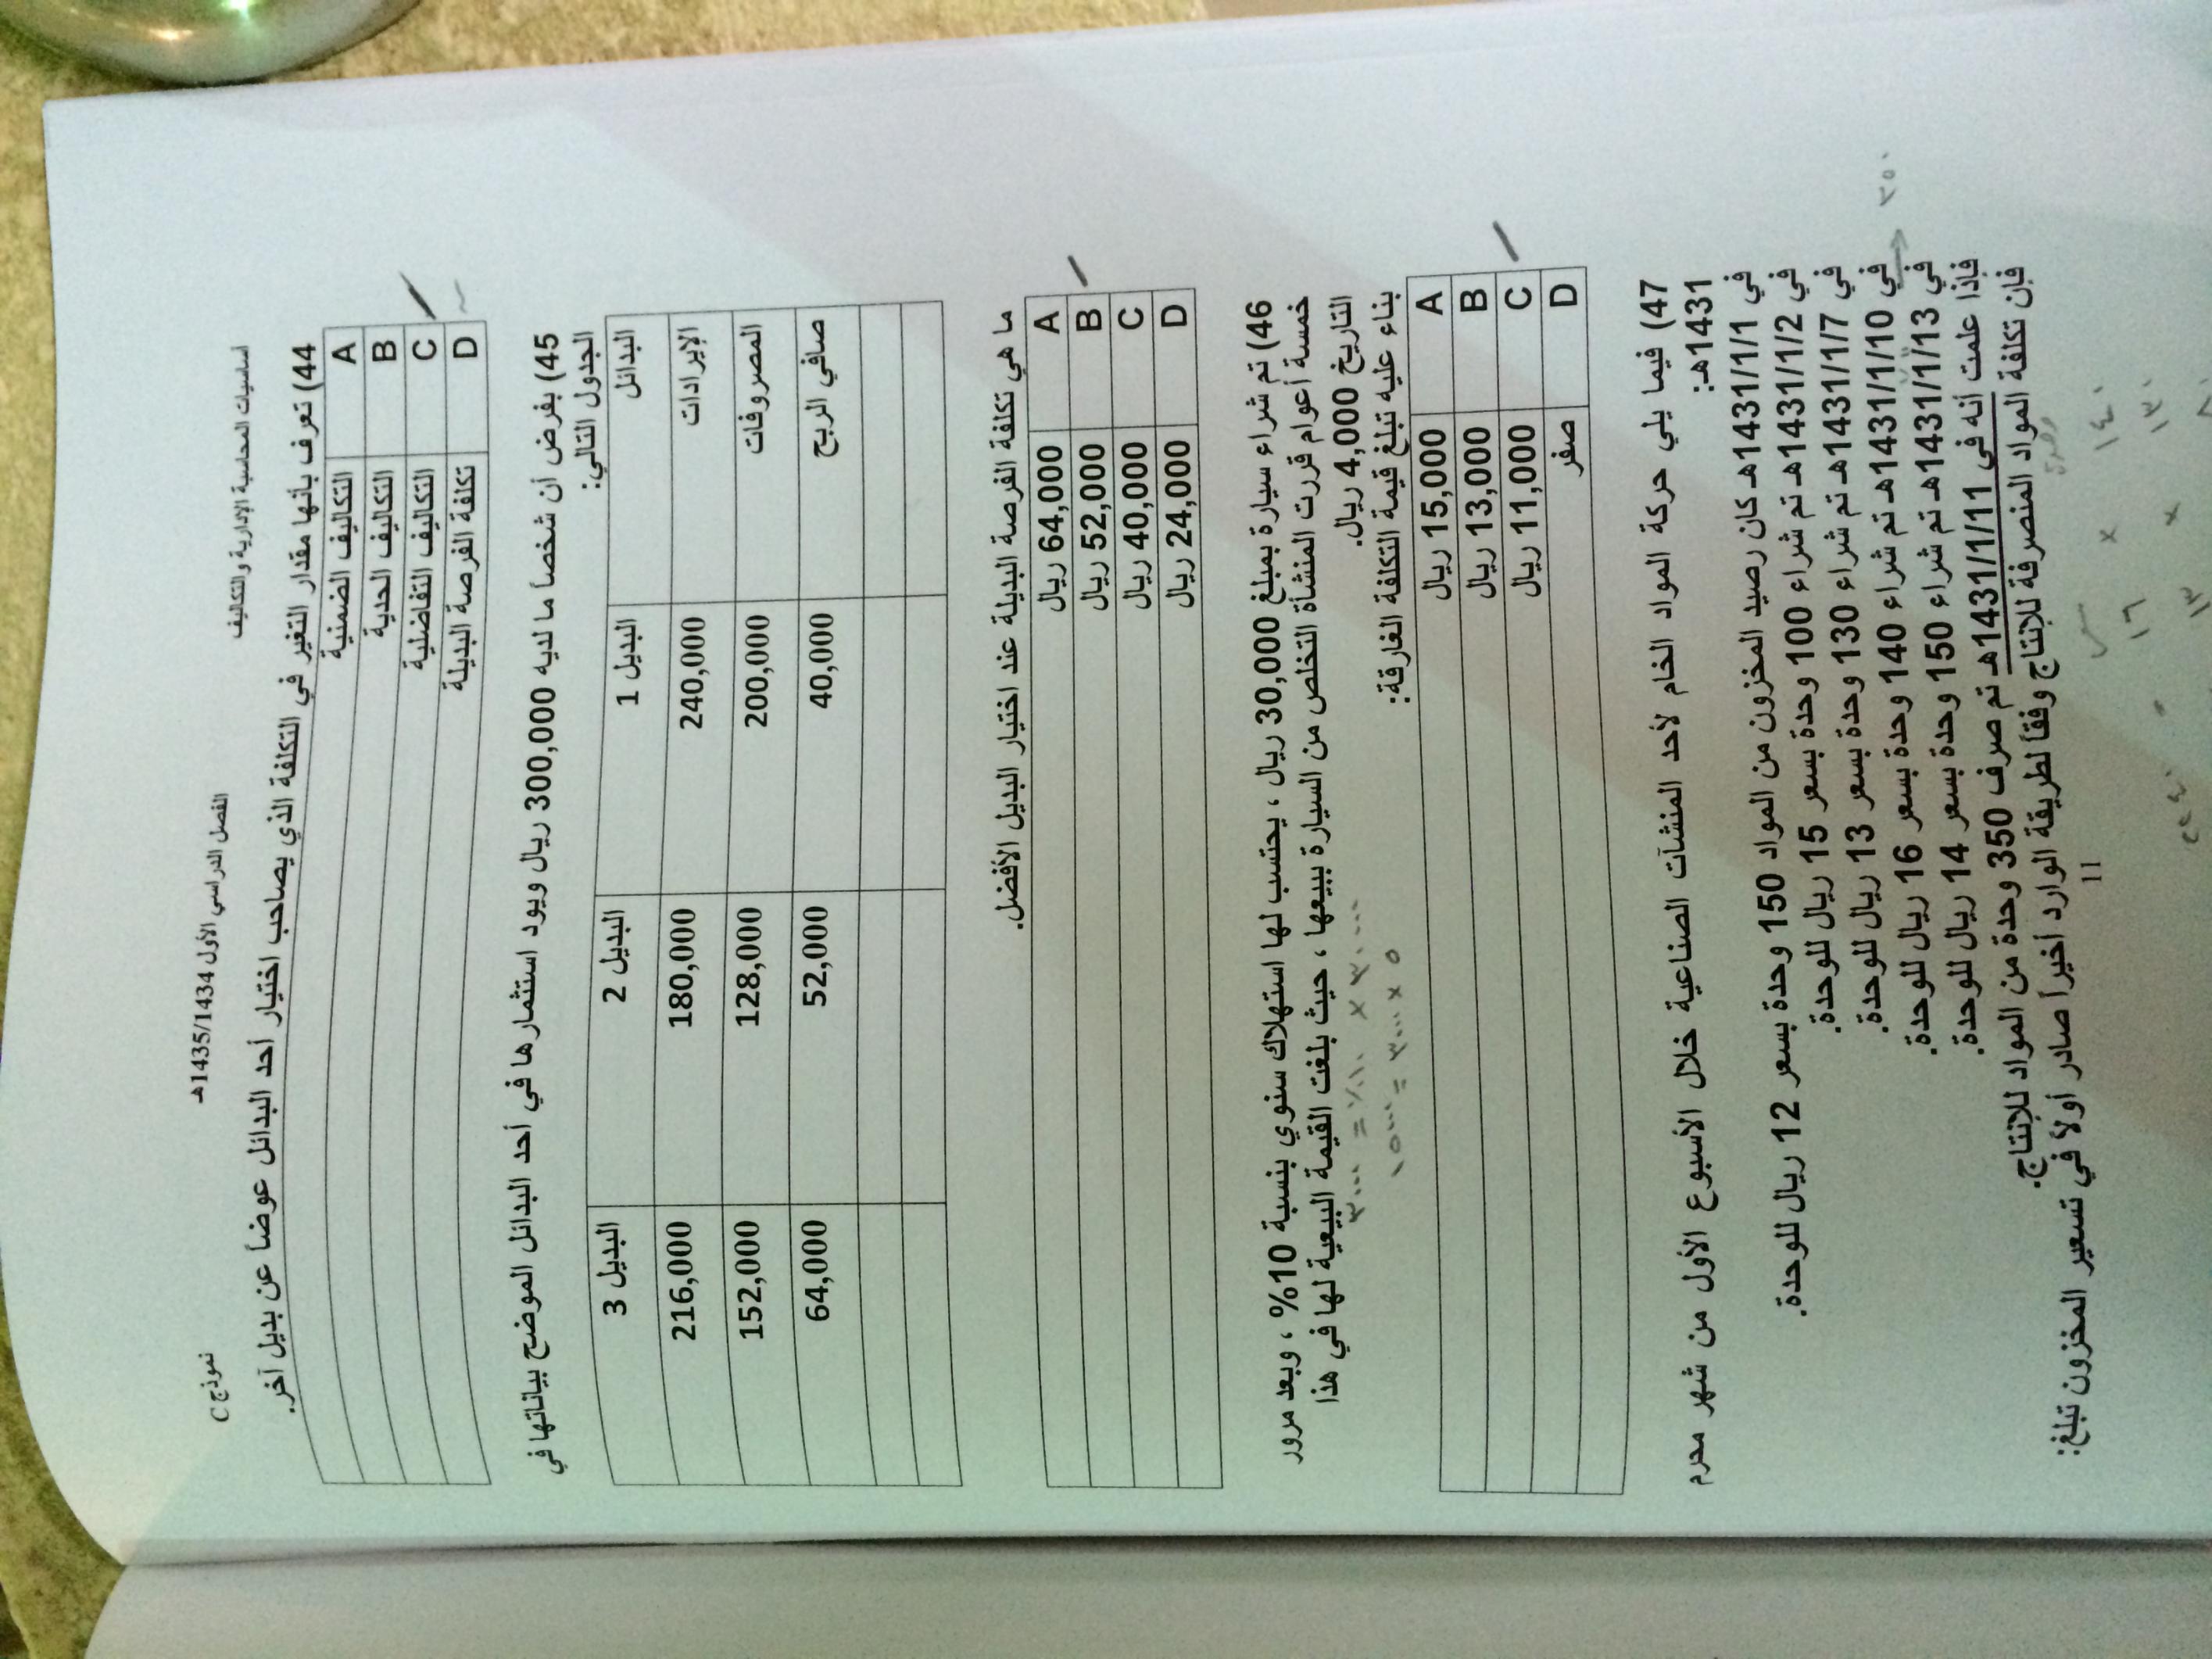 أساسيات المحاسبة الإدارية والتكاليف الفصل الدراسي الأول 1435/1434هـ نموذج C
44) تعرف بأنها مقدار التغير في التكلفة الذي يصاحب اختيار أحد البدائل عوضاً عن بديل آخر.
A التكاليف الضمنية
B التكاليف الحدية
C التكاليف التفاضلية
D تكلفة الفرصة البديلة
45) بفرض أن شخصاً ما لديه 300,000 ريال ويود استثمارها في أحد البدائل الموضح بياناتها في
الجدول التالي:
البدائل البديل 1 البديل 2 البديل 3
الإيرادات 240,000 180,000 216,000
المصروفات 200,000 128,000 152,000
صافي الربح 40,000 52,000 64,000
ما هي تكلفة الفرصة البديلة عند اختيار البديل الأفضل.
A 64,000 ريال
B 52,000 ريال
C 40,000 ريال
D 24,000 ريال
46) تم شراء سيارة بمبلغ 30,000 ريال ، يحتسب لها استهلاك سنوي بنسبة 10% ، وبعد مرور
خمسة أعوام قررت المنشأة التخلص من السيارة ببيعها ، حيث بلغت القيمة البيعية لها في هذا
التاريخ 4,000 ريال.
٣٠٠٠ = ٪١٠ × ٣٠٠٠٠
بناء عليه تبلغ قيمة التكلفة الغارقة:
١٥٠٠٠ = ٣٠٠٠ × ٥
A 15,000 ريال
B 13,000 ريال
C 11,000 ريال
D صفر
47) فيما يلي حركة المواد الخام لأحد المنشآت الصناعية خلال الأسبوع الأول من شهر محرم
1431هـ:
في 1431/1/1هـ كان رصيد المخزون من المواد 150 وحدة بسعر 12 ريال للوحدة.
في 1431/1/2هـ تم شراء 100 وحدة بسعر 15 ريال للوحدة.
في 1431/1/7هـ تم شراء 130 وحدة بسعر 13 ريال للوحدة.
في 1431/1/10هـ تم شراء 140 وحدة بسعر 16 ريال للوحدة.
في 1431/1/13هـ تم شراء 150 وحدة بسعر 14 ريال للوحدة.
٣٥٠
فإذا علمت أنه في 1431/1/11هـ تم صرف 350 وحدة من المواد للإنتاج.
فإن تكلفة المواد المنصرفة للإنتاج وفقاً لطريقة الوارد أخيراً صادر أولاً في تسعير المخزون تبلغ:
11
١٤٠ × ١٦
١٣٠ × ١٣
٢٢٤٠